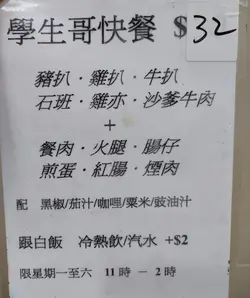 學生哥快餐 $32
豬扒·雞扒·牛扒
石班·雞亦·沙爹牛肉
+
餐肉·火腿·腸仔
煎蛋·紅腸·煙肉
配 黑椒/茄汁/咖喱/粟米/豉油汁
跟白飯 冷熱飲/汽水 +$2
限星期一至六 11時 － 2時